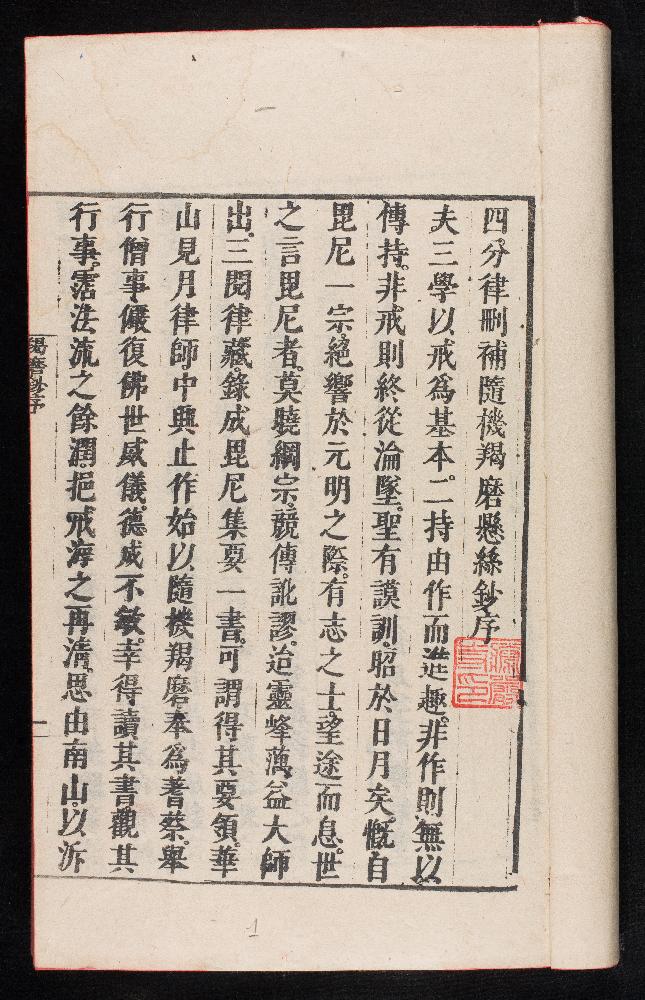 四分律刪補隨機羯磨懸絲鈔序
夫三學以戒為基本。二持由作而進趣。非作則無以
傳持。非戒則終從淪墜。聖有謨訓。昭於日月矣。慨自
毘尼一宗。絕響於元明之際。有志之士。望途而息。世
之言毘尼者。莫曉綱宗。競傳訛謬。迨靈峰蕅益大師
出。三閱律藏。錄成毘尼集要一書。可謂得其要領。華
山見月律師。中興止作。始以隨機羯磨奉為蓍蔡。舉
行僧事。儼復佛世威儀。德成不敏。幸得讀其書。觀其
行事。霑法流之餘潤。挹戒海之再清。思由南山。以泝
羯磨鈔序
一
1